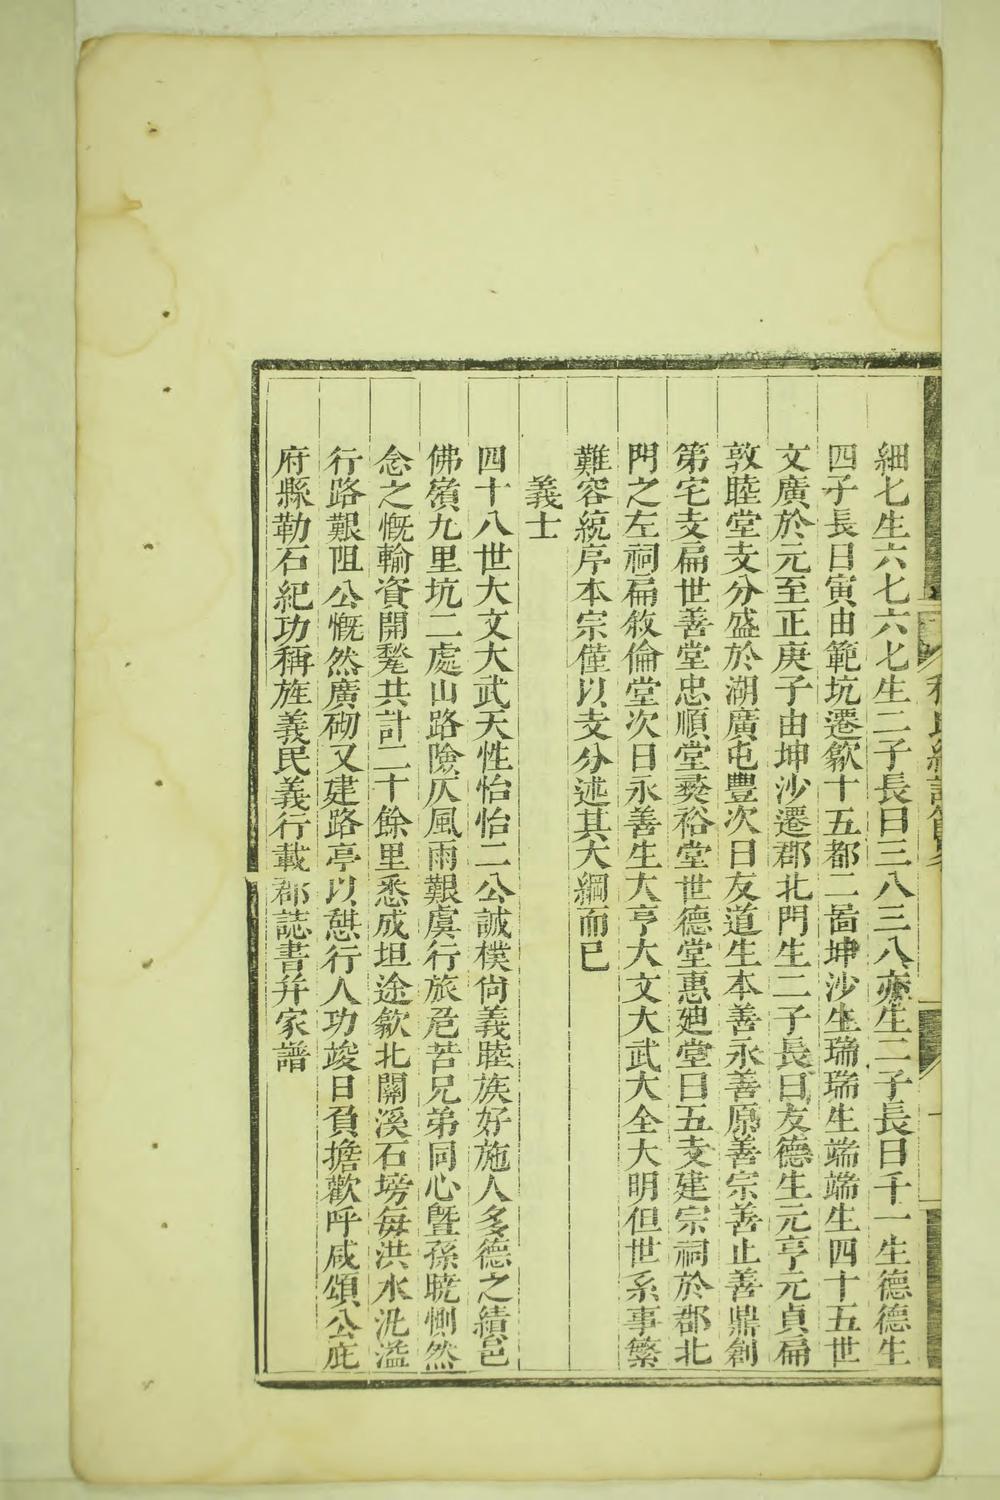 細七生六七六七生二子長曰三八三八亦生二子長曰千一生德德生
四子長曰寅由範坑遷歙十五都二啚坤沙生瑞瑞生端端生四十五世
文廣於元至正庚子由坤沙遷郡北門生二子長曰友德生元亨元貞扁
敦睦堂支分盛於湖廣屯豐次曰友道生本善永善原善宗善止善鼎創
第宅支扁世善堂忠順堂燕裕堂世德堂惠廸堂曰五支建宗祠於郡北
門之左祠扁敘倫堂次曰永善生大亨大文大武大全大明但世系事繁
難容統序本宗僅以支分述其大綱而已
義士
四十八世大文大武天性怡怡二公誠樸尙義睦族好施人多德之績邑
佛嶺九里坑二處山路險仄風雨艱虞行旅危苦兄弟同心曁孫曉惻然
念之慨輸資開鑿共計二十餘里悉成坦途歙北關溪石塝每洪水汎溢
行路艱阻公慨然廣砌又建路亭以憇行人功竣日負擔歡呼咸頌公庇
府縣勒石紀功稱旌義民義行載郡誌書并家譜